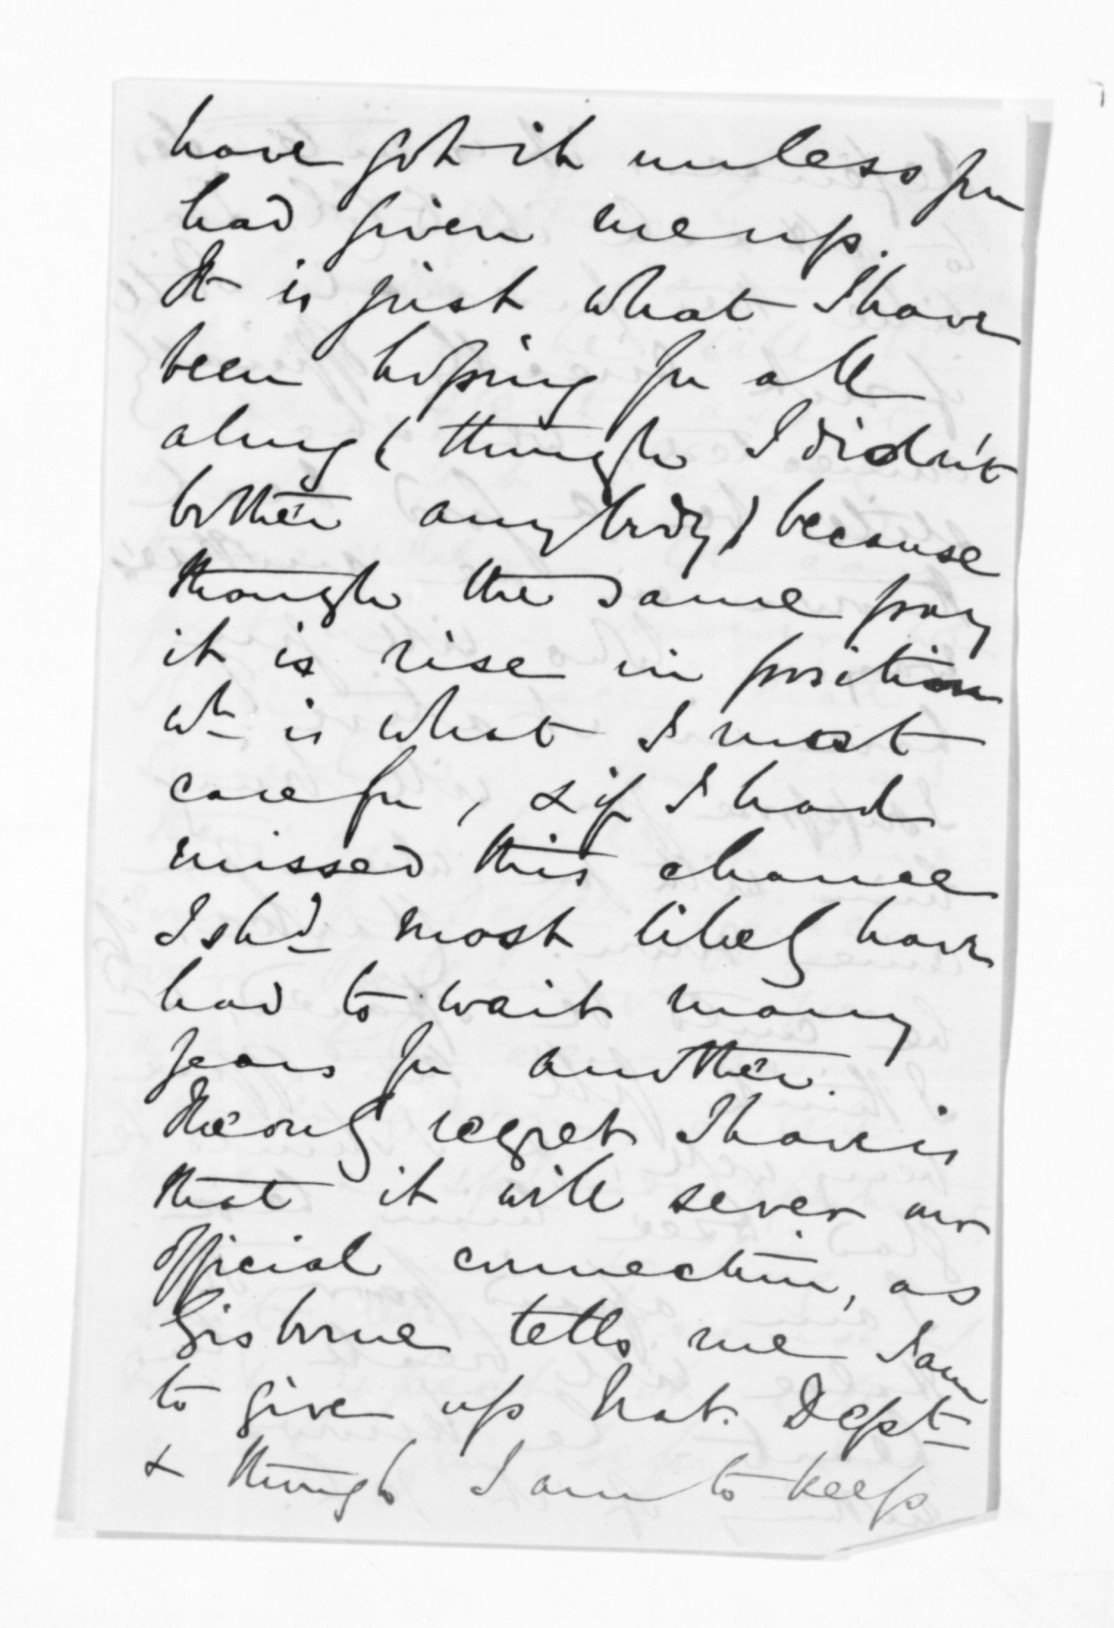 have got it unless you
had given me up.
It is just what I have
been hoping for all
along (though I didn't
bother anybody) because
though the same pay
it is rise in position
wh is what I most
care for, & if I had
missed this chance
I shd most likely have
had to wait many
years for another.
The only regret I have is
that it will sever our
official connection, as
Gisborne tells me I am
to give up Nat. Dept
& though I am to keep